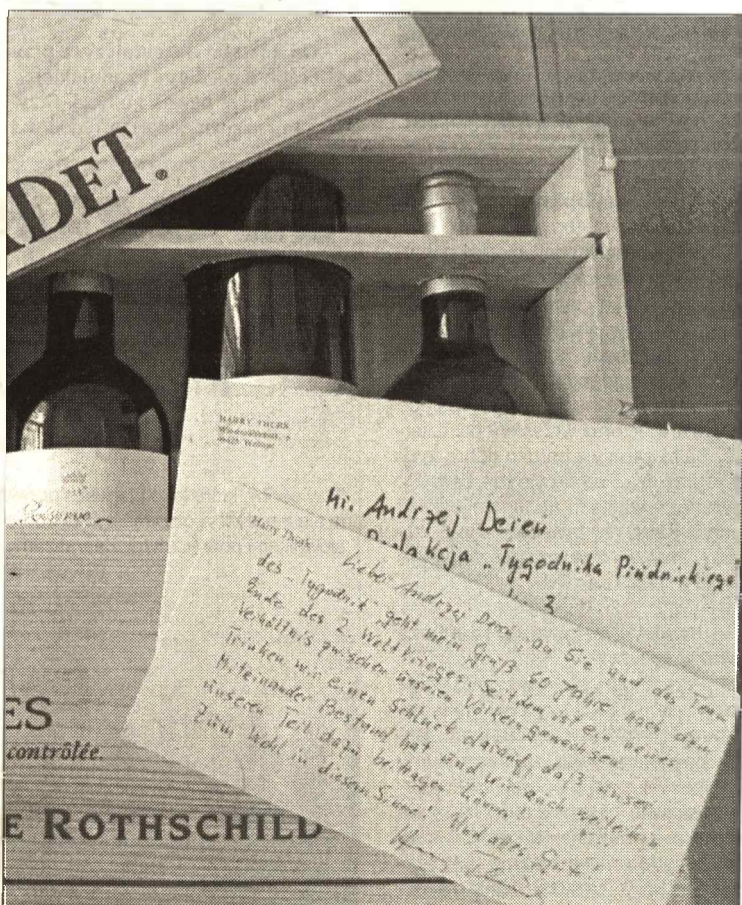 DET.
Réserve
HARRY THÜRK
Mr. Andrzej Dereń
Redakcja "Tygodnika Prudnickiego"
3
Harry Thürk
Lieber Andrzej Dereń, an Sie und das Team
des "Tygodnik" geht mein Gruß 60 Jahre nach dem
Ende des 2. Weltkrieges. Seitdem ist ein neues
Verhältnis zwischen unseren Völkern gewachsen
Trinken wir einen Schluck darauf, daß unser
Miteinander Bestand hat und wir auch weiterhin
unseren Teil dazu beitragen können!
Zum Wohl in diesem Sinne! Und alles Gute!
ES
contrôlée.
E ROTHSCHILD